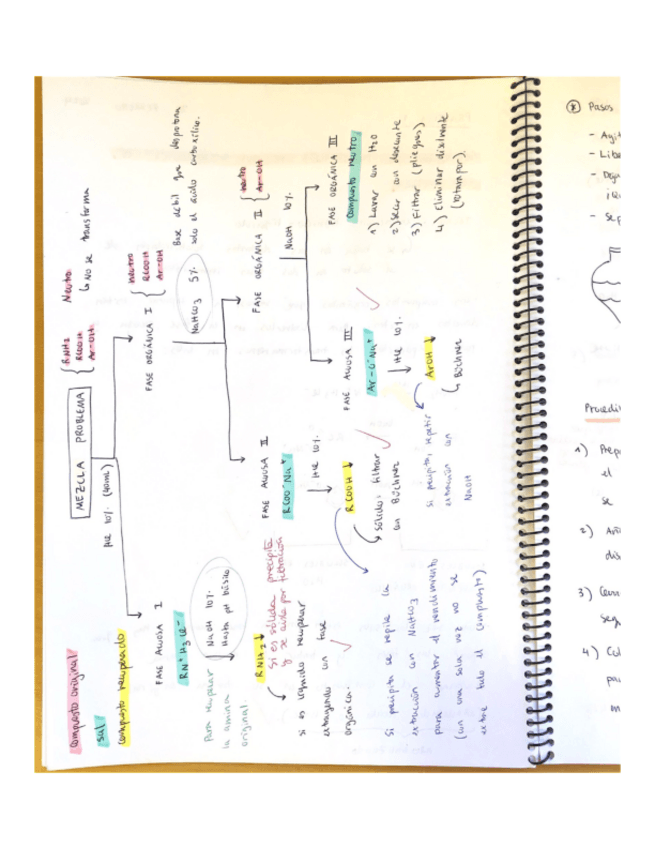 compuesto original
sal
compuesto recuperado
MEZCLA PROBLEMA
RNH2
RCOOH
Ar-OH
Neutro
↳ NO se transforma
HCl 10%. (40mL)
FASE ACUOSA I
RN+H3Cl-
Para recuperar
la amina
original.
NaOH 10%.
Hasta pH básico
RNH2↓
si es sólida precipita
y se aísla por filtración
si es líquido recuperar
extrayendo con fase
orgánica.
FASE ORGÁNICA I
neutro
RCOOH
Ar-OH
NaHCO3 5%.
Base débil que desprotona
solo el ácido carboxílico.
FASE ACUOSA II
RCOO-Na+
HCl 10%.
RCOOH↓
↳ sólido: filtrar
en Büchner
Si precipita se repite la
extracción con NaHCO3
para aumentar el rendimiento
(con una sola vez no se
extrae todo el compuesto).
FASE ORGÁNICA II
neutro
Ar-OH
NaOH 10%.
FASE ACUOSA III
Ar-O-Na+
HCl 10%.
ArOH↓
↳ Büchner
si precipita, repetir
extracción con
NaOH
FASE ORGÁNICA III
compuesto neutro
1) Lavar con H2O
2) Secar con desecante
3) Filtrar (pliegues)
4) Eliminar disolvente
(rotavapor).
* Pasos
- Agit
- Libe
- Deja
- Sep
Procedi
1) Prep
el
se
2)
dis
3) Cerra
seg
4) Col